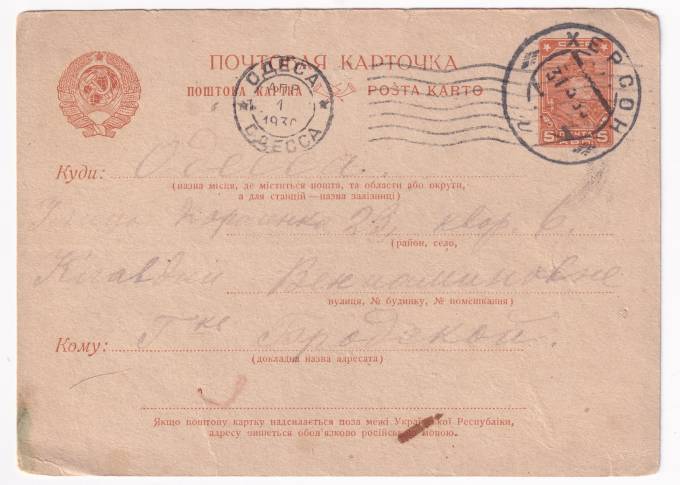 ПОЧТОВАЯ КАРТОЧКА
ПОШТОВА КАРТКА POŜTA KARTO
ОДЕСА
1
1930
ОДЕССА
ХЕРСОН
5 5
Куди: Одесса.
(назва місця, де міститься пошта, та области або округи,
а для станцій — назва залізниці)
23, квор. 6.
(район, село,
Клавдии Вениаминовне
вулиця, № будинку, № помешкання)
Кому: Г-ке Бродской.
(докладна назва адресата)
Якщо поштову картку надсилається поза межі Української Республіки,
адресу пишеться обов'язково російською мовою.